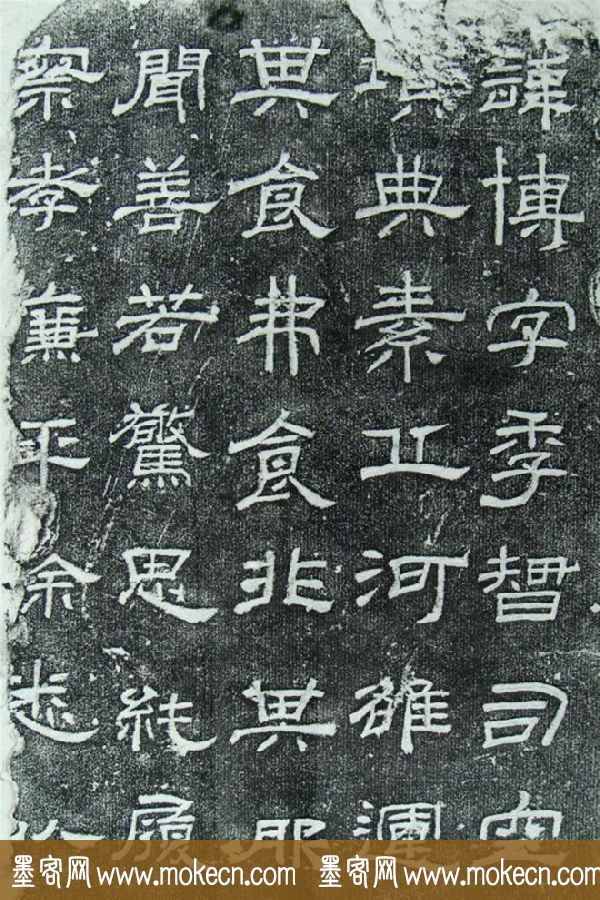 諱博字季智司空
典素丘河雒運
其食弗食非其
聞善若驚思純履
察孝廉不除
墨客网 www.mokecn.com 墨客网 www.mokecn.com